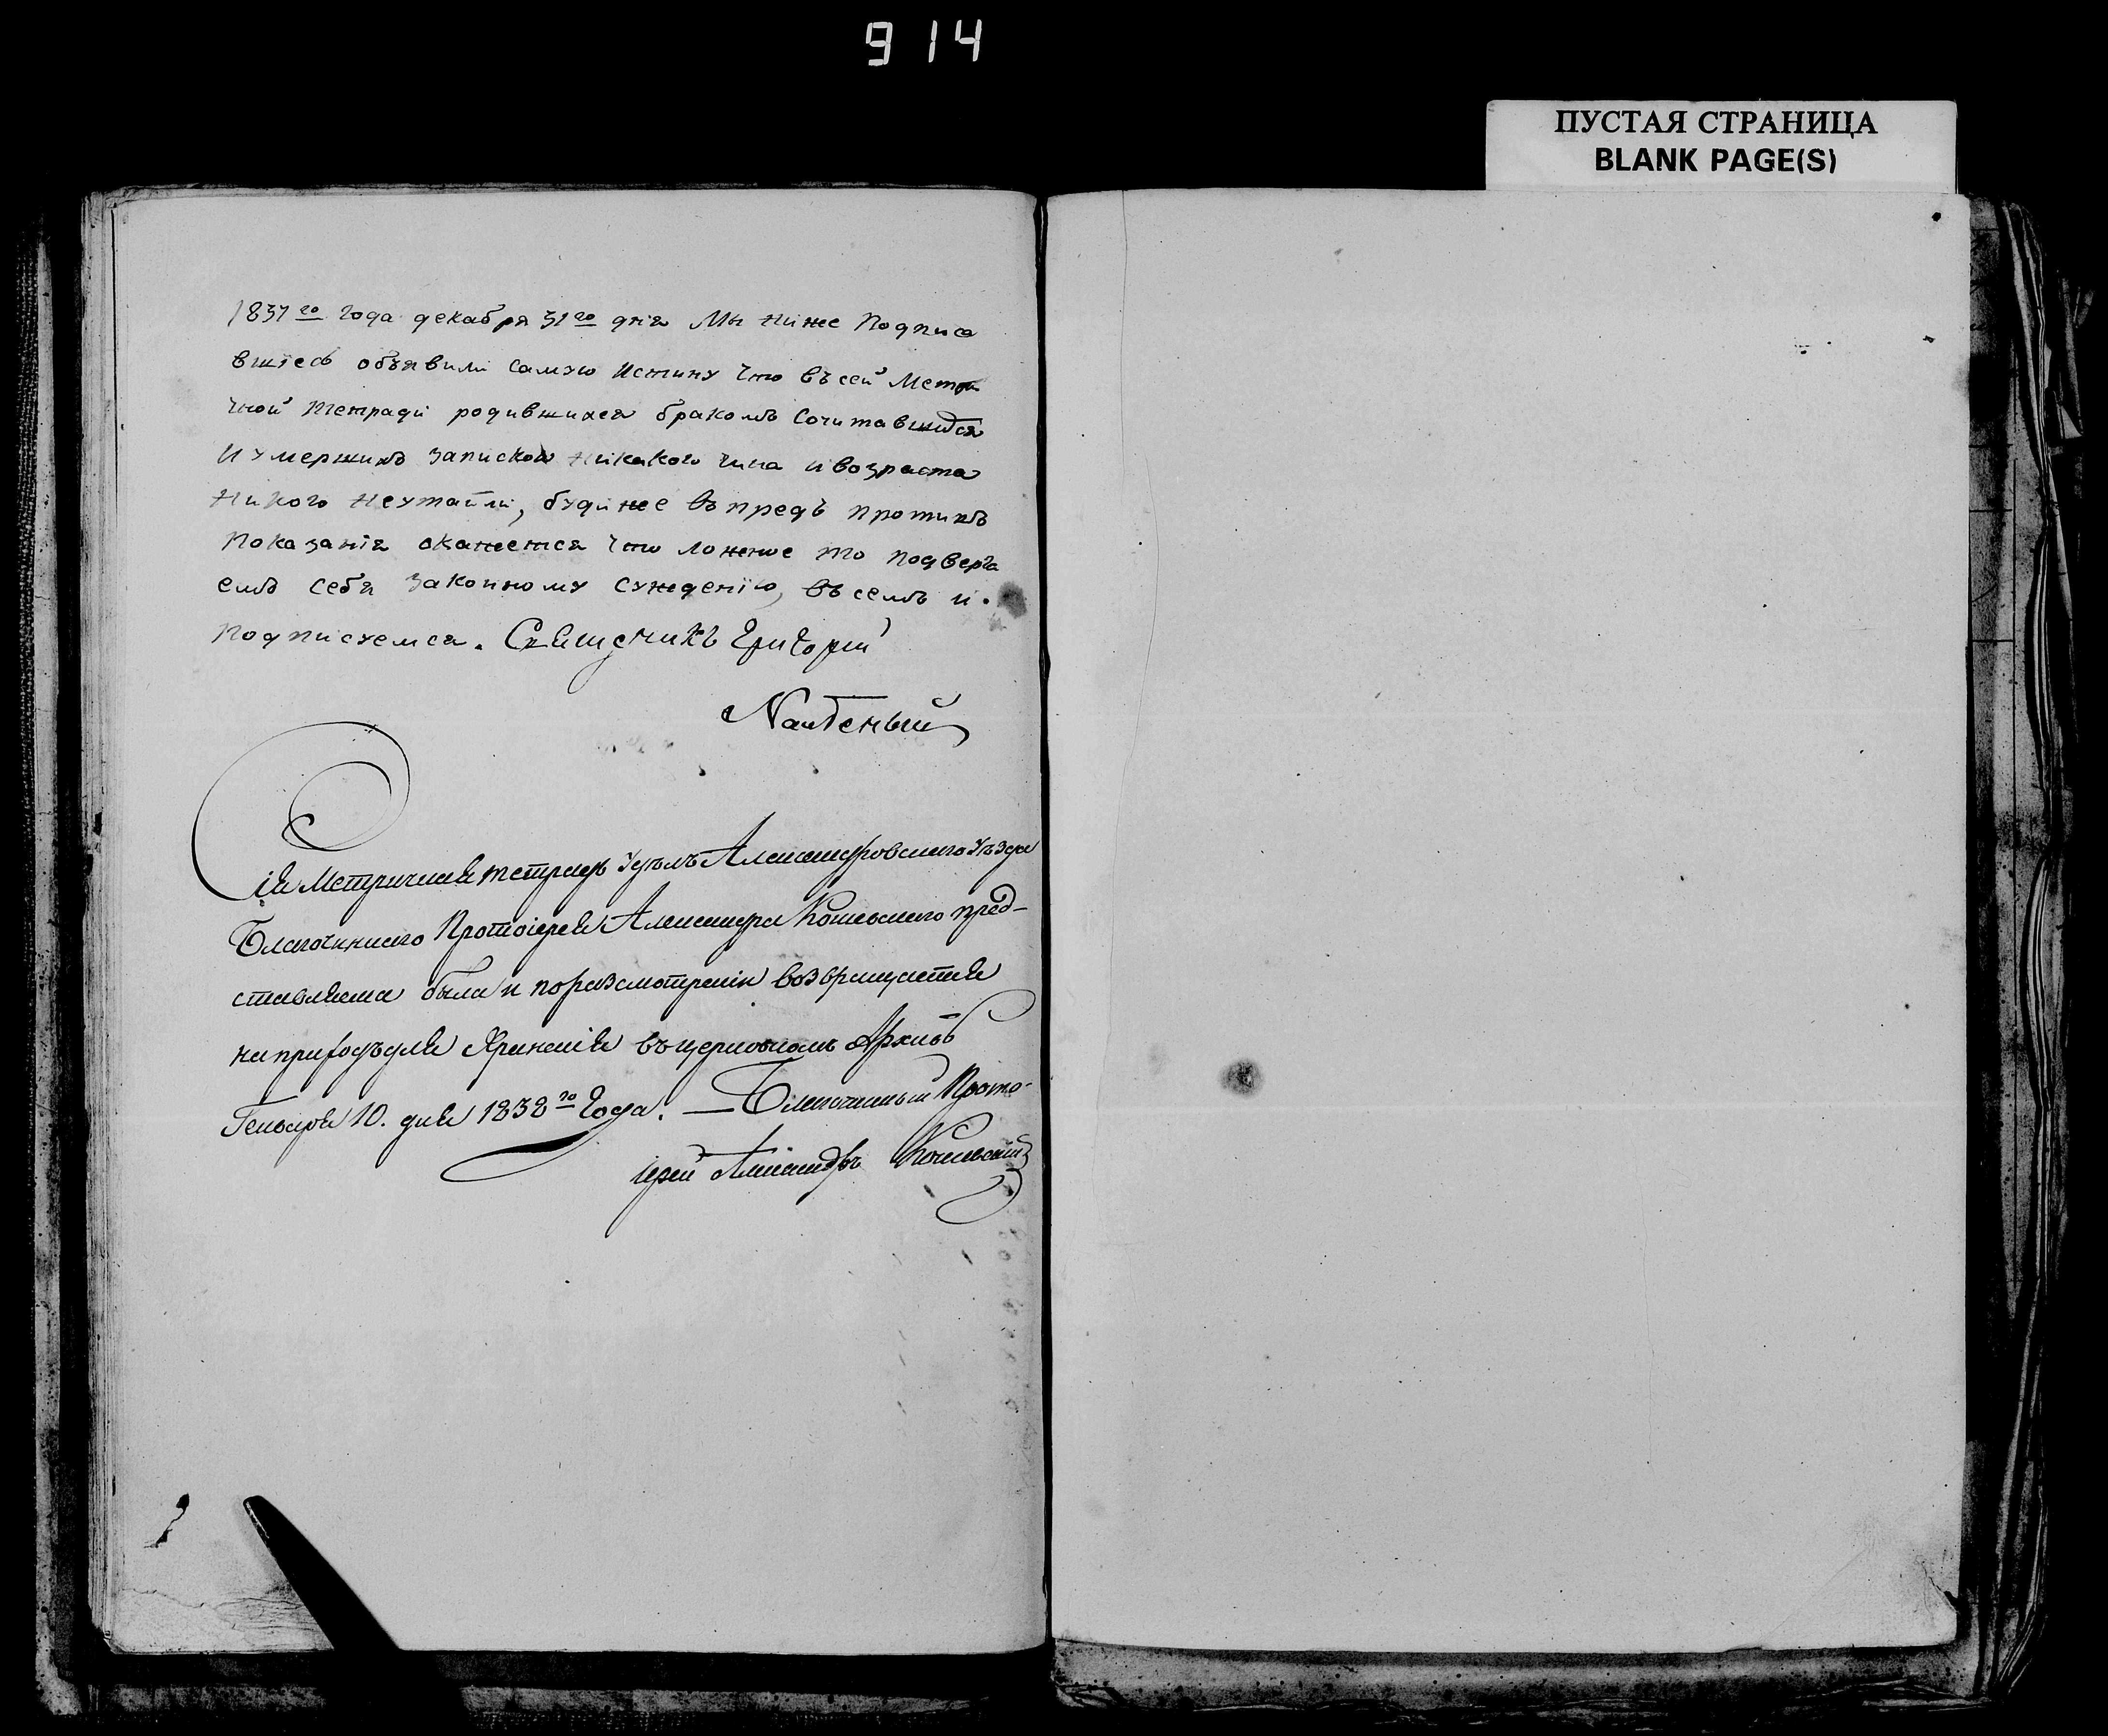 914
ПУСТАЯ СТРАНИЦА
BLANK PAGE(S)
1837го года декабря 31го дня Мы ниже Подписа
вшіесь объявили самую Истину что въ сей Метри
чной тетради родившихся бракомъ Сочитавшихся
И умершихъ запискою никакого чина и возраста
Никого Неутаили, буди же въ предъ противъ
Показанія окажется что ложное то подверга
емъ себя законному сужденію, въ семъ и
Подписуемся. Священникъ Григорій
Найденый
Сія Метричная тетрадь Александровскаго уѣзда
Благочиннаго Протоіерея Александра предъ-
ставлена была и по разсмотреніи возвращается
на приходъ для Храненія въ церковномъ Архивѣ
Генваря 10. дня 1838го Года. — Благочинный Прото-
іерей Александръ